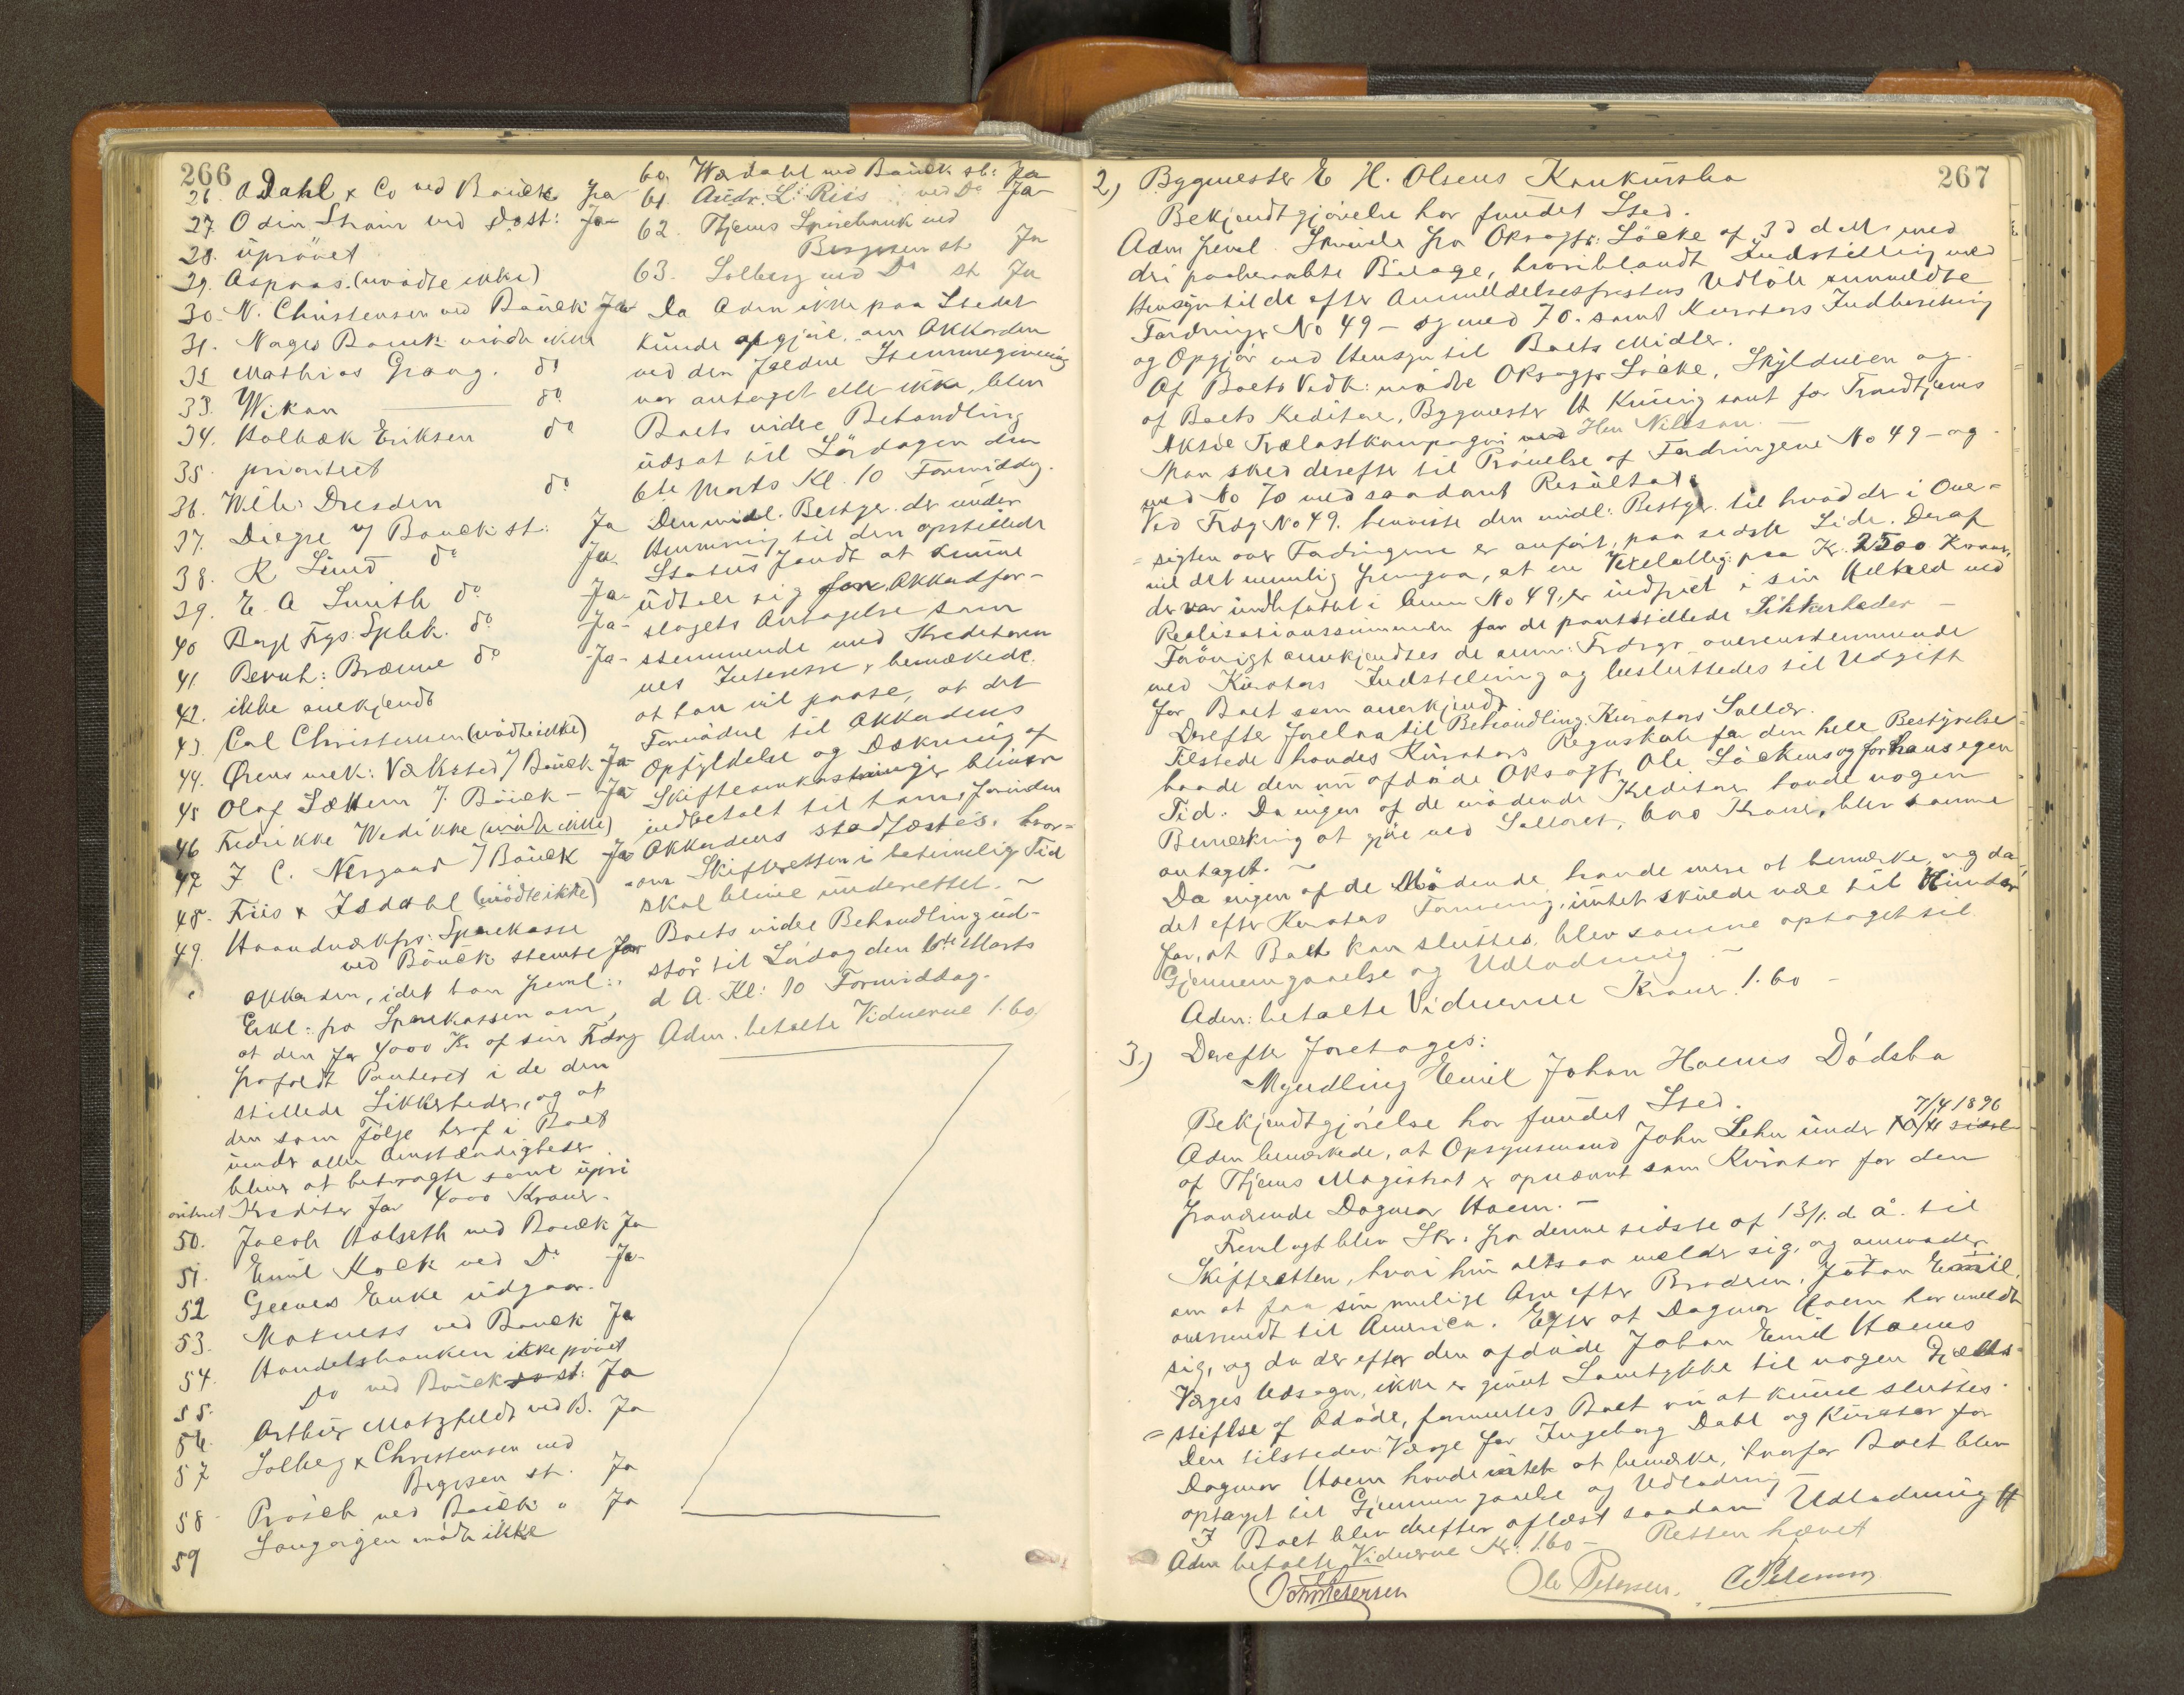 266
26. O Dahl & Co ved Bauck Ja
27. Odin Strøm ved Do st: Ja
28. uprövet
29. Aspaas (mödte ikke)
30. N. Christensen ved Bauck Ja
31. Norges Bank mödte ikke
32 Mathias Grang. do
33. Wikan do
34. Holbæk Eriksen do
35. prioritet
36. Wilh: Dresden do
37. Diegre v/ Bauck st: Ja
38. R Lund do Ja
39. E. A Smith do Ja
40 Bergl Frgs: Spbk. do Ja
41 Bernh: Brænne do Ja
42. ikke anekjendt
43. Carl Christensen (mödte ikke)
44. Ørens mek: Værksted v/ Bauck Ja
45 Olaf v/ Bauck Ja
46 Fredrikke Wedikke (mödte ikke)
47 J C. Nergaard v/ Bauck Ja
48. Friis & Isdahl (mödte ikke)
49. Haandværkfrs: Sparekasse
ved Bauck stemte for
Akkorden, idet han freml:
Erkl: fra Sparekassen om,
at den for 4000 Kr af sin Fdrg
frafaldt Panteret i de den
stillede Sikkerheder, og at
den som Følge heraf i Boet
under alle Omstændigheder
bliver at betragte som upri
oriteret Kreditor for 4000 Kroner.
50. Jacob Halseth ved Bauck Ja
51. Emil Kock ved Do Ja
52 Geeves Enke udgaar.
53. Moxness ved Bauck Ja
54. Handelsbanken ikke prövet
55. Do ved Bauck st: Ja
56. Arthur Motzfeldt ved B. Ja
57 Solberg & Christensen ved
Bergersen st. Ja
58 Prösch ved Bauck " Ja
59 mödte ikke
60. Wærdahl ved Bauck st: Ja
61. Andr. L. Riis ved Do Ja
62. Thjems Sparebank ved
Bergersen st Ja
63. Solberg ved Do st Ja
Da Adm ikke paa Stedet
kunde opgjøre, om Akkorden
ved den faldne Stemmegivning
var antaget eller ikke, blev
Boets videre Behandling
udsat til Lördagen den
6te Marts Kl. 10 Formiddg.
Den midl. Bestyr. der under
Henvisning til den opstillede
Status fandt at kunne
udtale sig for Akkordfor-
slagets Antagelse som
stemmende med Kreditorer
nes Interesse, bemærkede
at han vil paase, at det
Fornödne til Akkordens
Opfyldelse og Dækning af
Skifteomkostninger bliver
indbetalt til ham, forinden
Akkorden stadfæstes. hvor-
om Skifteretten i betimelig Tid
skal blive underrettet. ~
Boets videre Behandling ud-
står til Lördag den 6te Marts
d A. Kl: 10 Formiddag.
Adm. betalte Vidnerne 1.60
267
2) Bygmester E H. Olsens Konkursbo
Bekjendtgjörelse har fundet Sted.
Adm freml. Skrivelse fra Oksagfr: Löcke af 3d d M. med
deri paaberaabte Bilage, hvoriblandt Indstilling med
Hensyn til de efter Anmeldelsesfristens Udlöb anmeldte
Fordringer No 49 – og med 70. samt Kurators Indberetning
og Opgjör med Hensyn til Boets Midler.
Af Boets Vedk: mödte Oksagfr Löcke, Skyldneren og
af Boets Kreditorer, Bygmester H Kunig samt for Trondhjems
Aktie Trælastkompagni ved Herr Nilsson.
Man skred derefter til Prövelse af Fordringene No 49 – og
med No 70 med saadant Resultat:
Ved Frdg No 49. henviste den midl: Bestyr. til hvad der i Over-
= sigten over Fordringerne er anfört, paa sidste Side. Deraf
vil det nemlig fremgaa, at en Vexelobligt: paa Kr. 2500 Kroner,
der var indbefattet i Anm No 49, er indfriet i sin Helhed ved
Realisationssummen for de pantstillede Sikkerheder –
Forövrigt anerkjendtes de anm: Frdrgr. overensstemmende
med Kurators Indstilling og besluttedes til Udgift
for Boet som anerkjendt
Derefter forelaa til Behandling Kurators Sallær.
Tilstede havdes Kurators Regnskab for den hele Bestyrelse
baade den nu afdöde Oksagfr Ole Löckens og for hans egen
Tid. Da ingen af de mödende Kreditorer havde nogen
Bemærkning at gjöre ved Sallæret, 600 Kroner, blev samme
antaget. ~
Da ingen af de Mödende havde mere at bemærke, og da
det efter Kurators Formening intet skulde være til Hinder
for, at Boet kan sluttes, blev samme optaget til
Gjennemgaaelse og Udlodning. –
Adm: betalte Vidnerne Kroner 1.60 –
3.) Derefter foretages:
Myndling Emil Johan Hoems Dödsbo
Bekjendtgjörelse har fundet Sted.
7/4 1896
Adm bemærkede, at Opsynsmand John Lehn under
af Thjems Magistrat er opnævnt som Kurator for den
fraværende Dagmar Hoem. –
Fremlagt blev Skr. fra denne sidste af 13/1. d. å. til
Skifteretten, hvori hun altsaa melder sig, og anmoder
om at faa sin mulige Arv efter Broderen, Johan Emil,
oversendt til America. Efter at Dagmar Hoem har meldt
sig, og da der efter den afdöde Johan Emil Hoems
Værges Udsagn, ikke er givet Samtykke til nogen Gjælds-
= stiftelse af Afdöde, formentes Boet nu at kunne sluttes.
Den tilstedev: Værge for Ingeborg Dahl og Kurator for
Dagmar Hoem havde intet at bemærke, hvorfor Boet blev
optaget til Gjennemgaaelse og Udlodning –
I Boet blev derefter aflæst saadan Udlodning #
Adm betalte Vidnerne Kr: 1.60 – Retten hævet
Ole Petersen. C Petersen